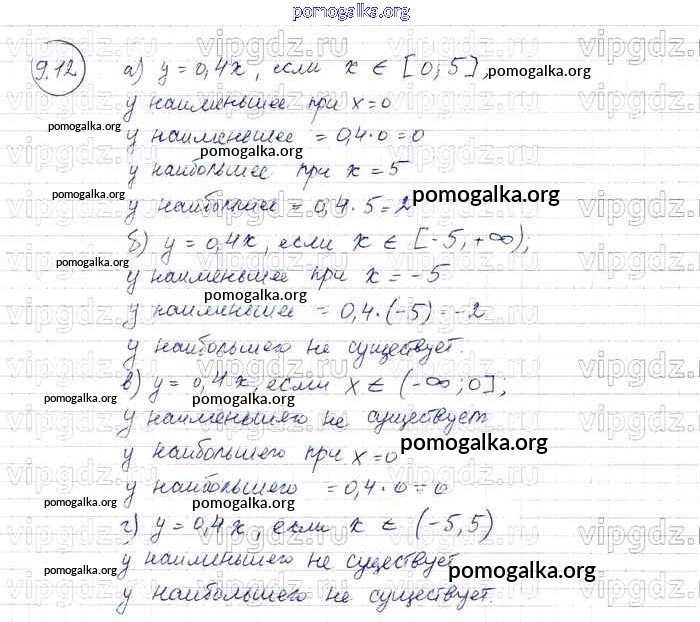 pomogalka.org
9.12
а) y = 0,4x, если x ∈ [0; 5], pomogalka.org
y наименьшее при x = 0
pomogalka.org
y наименьшее = 0,4·0 = 0
pomogalka.org
y наибольшее при x = 5
pomogalka.org
y наибольшее = 0,4·5 = 2 pomogalka.org
б) y = 0,4x, если x ∈ [-5, +∞);
pomogalka.org
y наименьшее при x = -5
pomogalka.org
y наименьшее = 0,4·(-5) = -2
y наибольшего не существует.
в) y = 0,4x, если x ∈ (-∞; 0];
pomogalka.org pomogalka.org
y наименьшего не существует
pomogalka.org
y наибольшего при x = 0
y наибольшего = 0,4·0 = 0
pomogalka.org pomogalka.org
г) y = 0,4x, если x ∈ (-5, 5)
y наименьшего не существует
pomogalka.org pomogalka.org
y наибольшего не существует.
vipgdz.ru